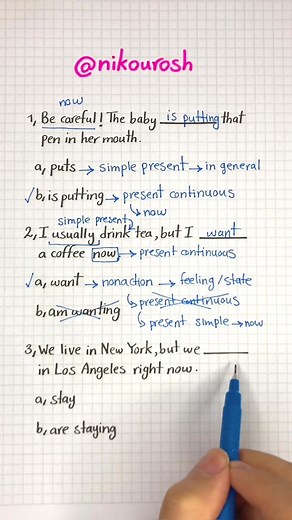 @nikourosh
now
1, Be careful! The baby is putting that
pen in her mouth.
a, puts → simple present → in general
✓ b, is putting → present continuous
↳ now
simple present
2, I usually drink tea, but I want
a coffee now → present continuous
✓ a, want → nonaction → feeling/state
b, am wanting ↳ present continuous
↳ present simple → now
3, We live in New York, but we ______
in Los Angeles right now.
a, stay
b, are staying